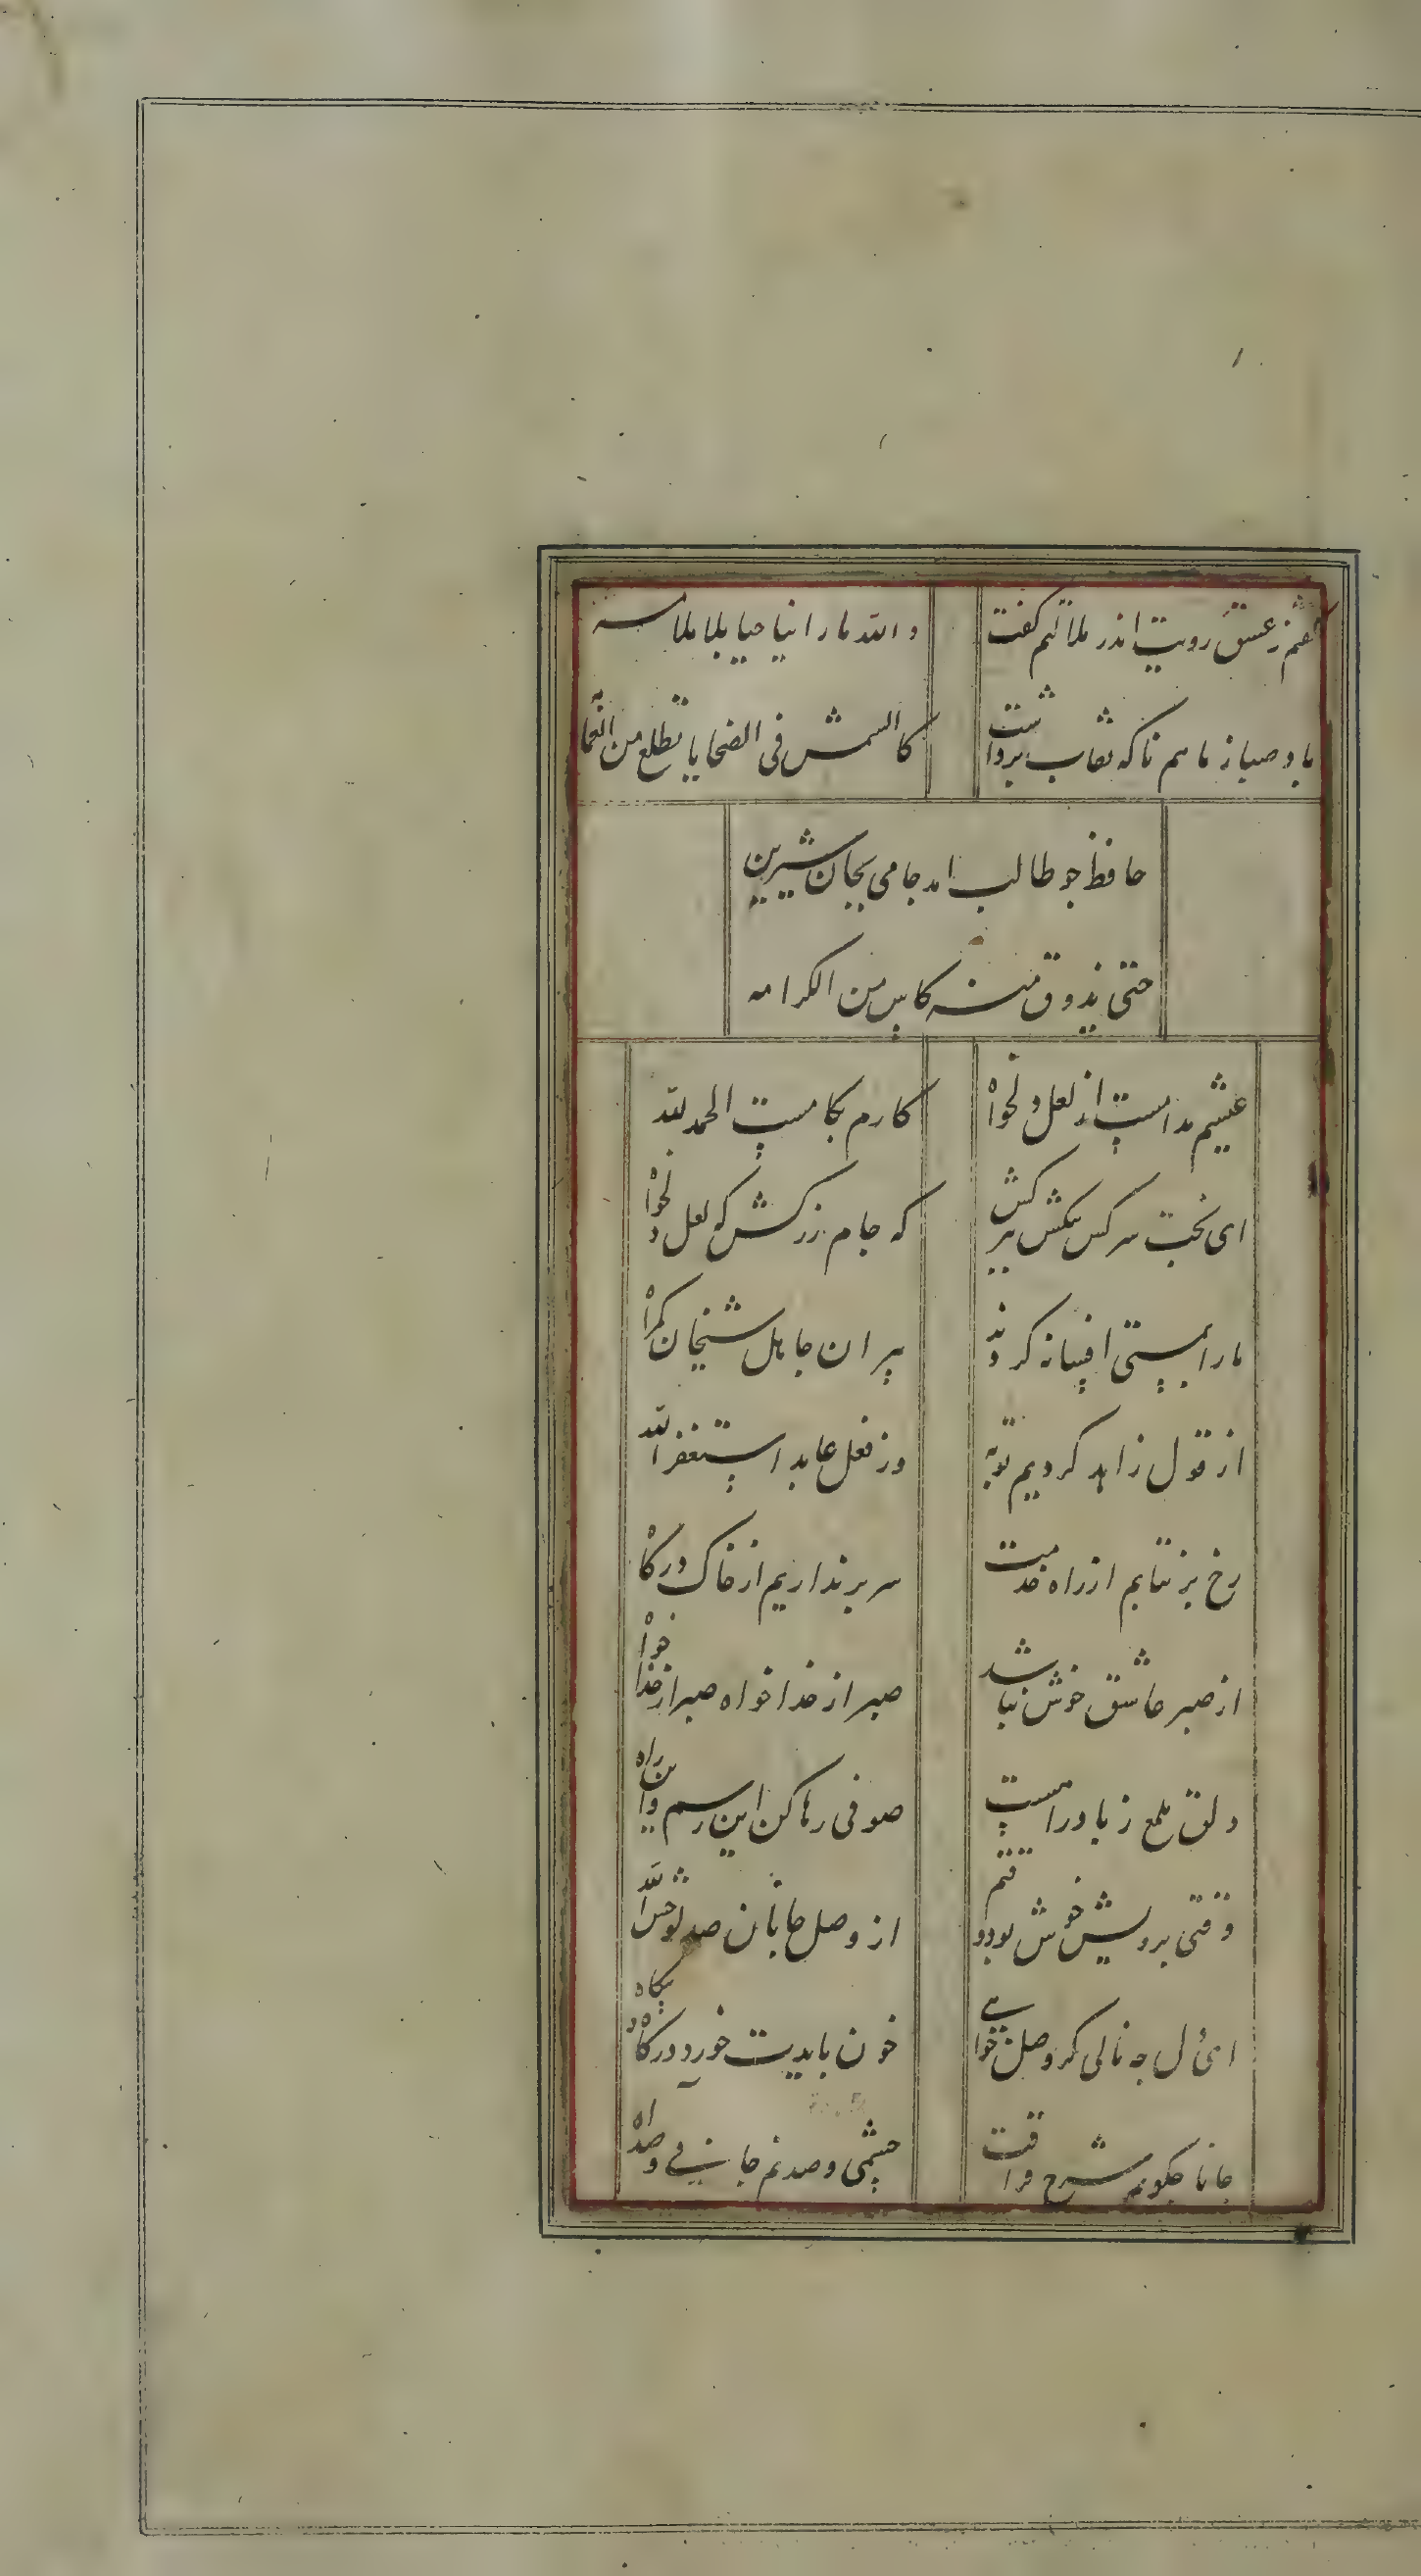 گفتم ز عشق رویت اندر ملاتیم گفت
والله ما رانیا حبا بلا ملامه
باد صبا ز ماهم ناکه نقاب برداشت
کالشمس فی الضحایا تطلع من الغمامه
حافظ چو طالب امد جامی بجان شیرین
حتی یذوق منه کاس من الکرامه
عیشم مدامست از لعل دلخواه
کارم بکامست الحمد لله
ای بخت سرکش تنگش ببر کش
که جام زرکش که لعل دلخواه
ما را بمستی افسانه کردند
پیران جاهل شیخان کمراه
از قول زاهد کردیم توبه
وز فعل عابد استغفر الله
رخ بر نتابم از راه خدمت
سر بر نداریم از خاک درکاه
از صبر عاشق خوش نباشد
صبر از خدا خواه صبر از خدا خواه
دلق ملمع زنا در راهست
صوفی رها کن این رسم و این راه
وقتی برویش خوش بود وقتم
از وصل جانان صد لوحش الله
ای دل چه نالی کر وصل خواهی
خون بایدت خورد در کاه و بیکاه
جانا چکویم شرح فراقت
چشمی و صد نم جانی و صد اه